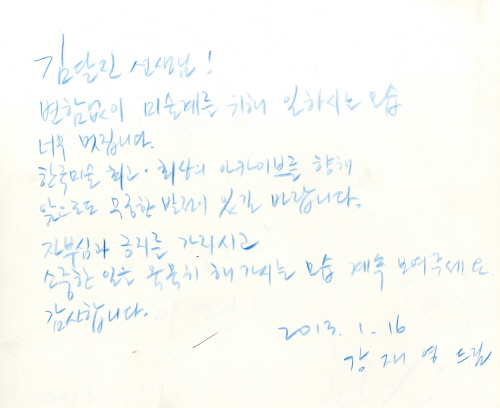 김달진 선생님!
변함없이 미술계를 위해 일하시는 모습
너무 멋집니다.
한국미술 최고·최상의 아카이브를 향해
앞으로도 무궁한 발전이 있길 바랍니다.
자부심과 긍지를 가지시고
소중한 일을 묵묵히 해가시는 모습 계속 보여주세요.
감사합니다.
2013. 1-16
강재영 드림